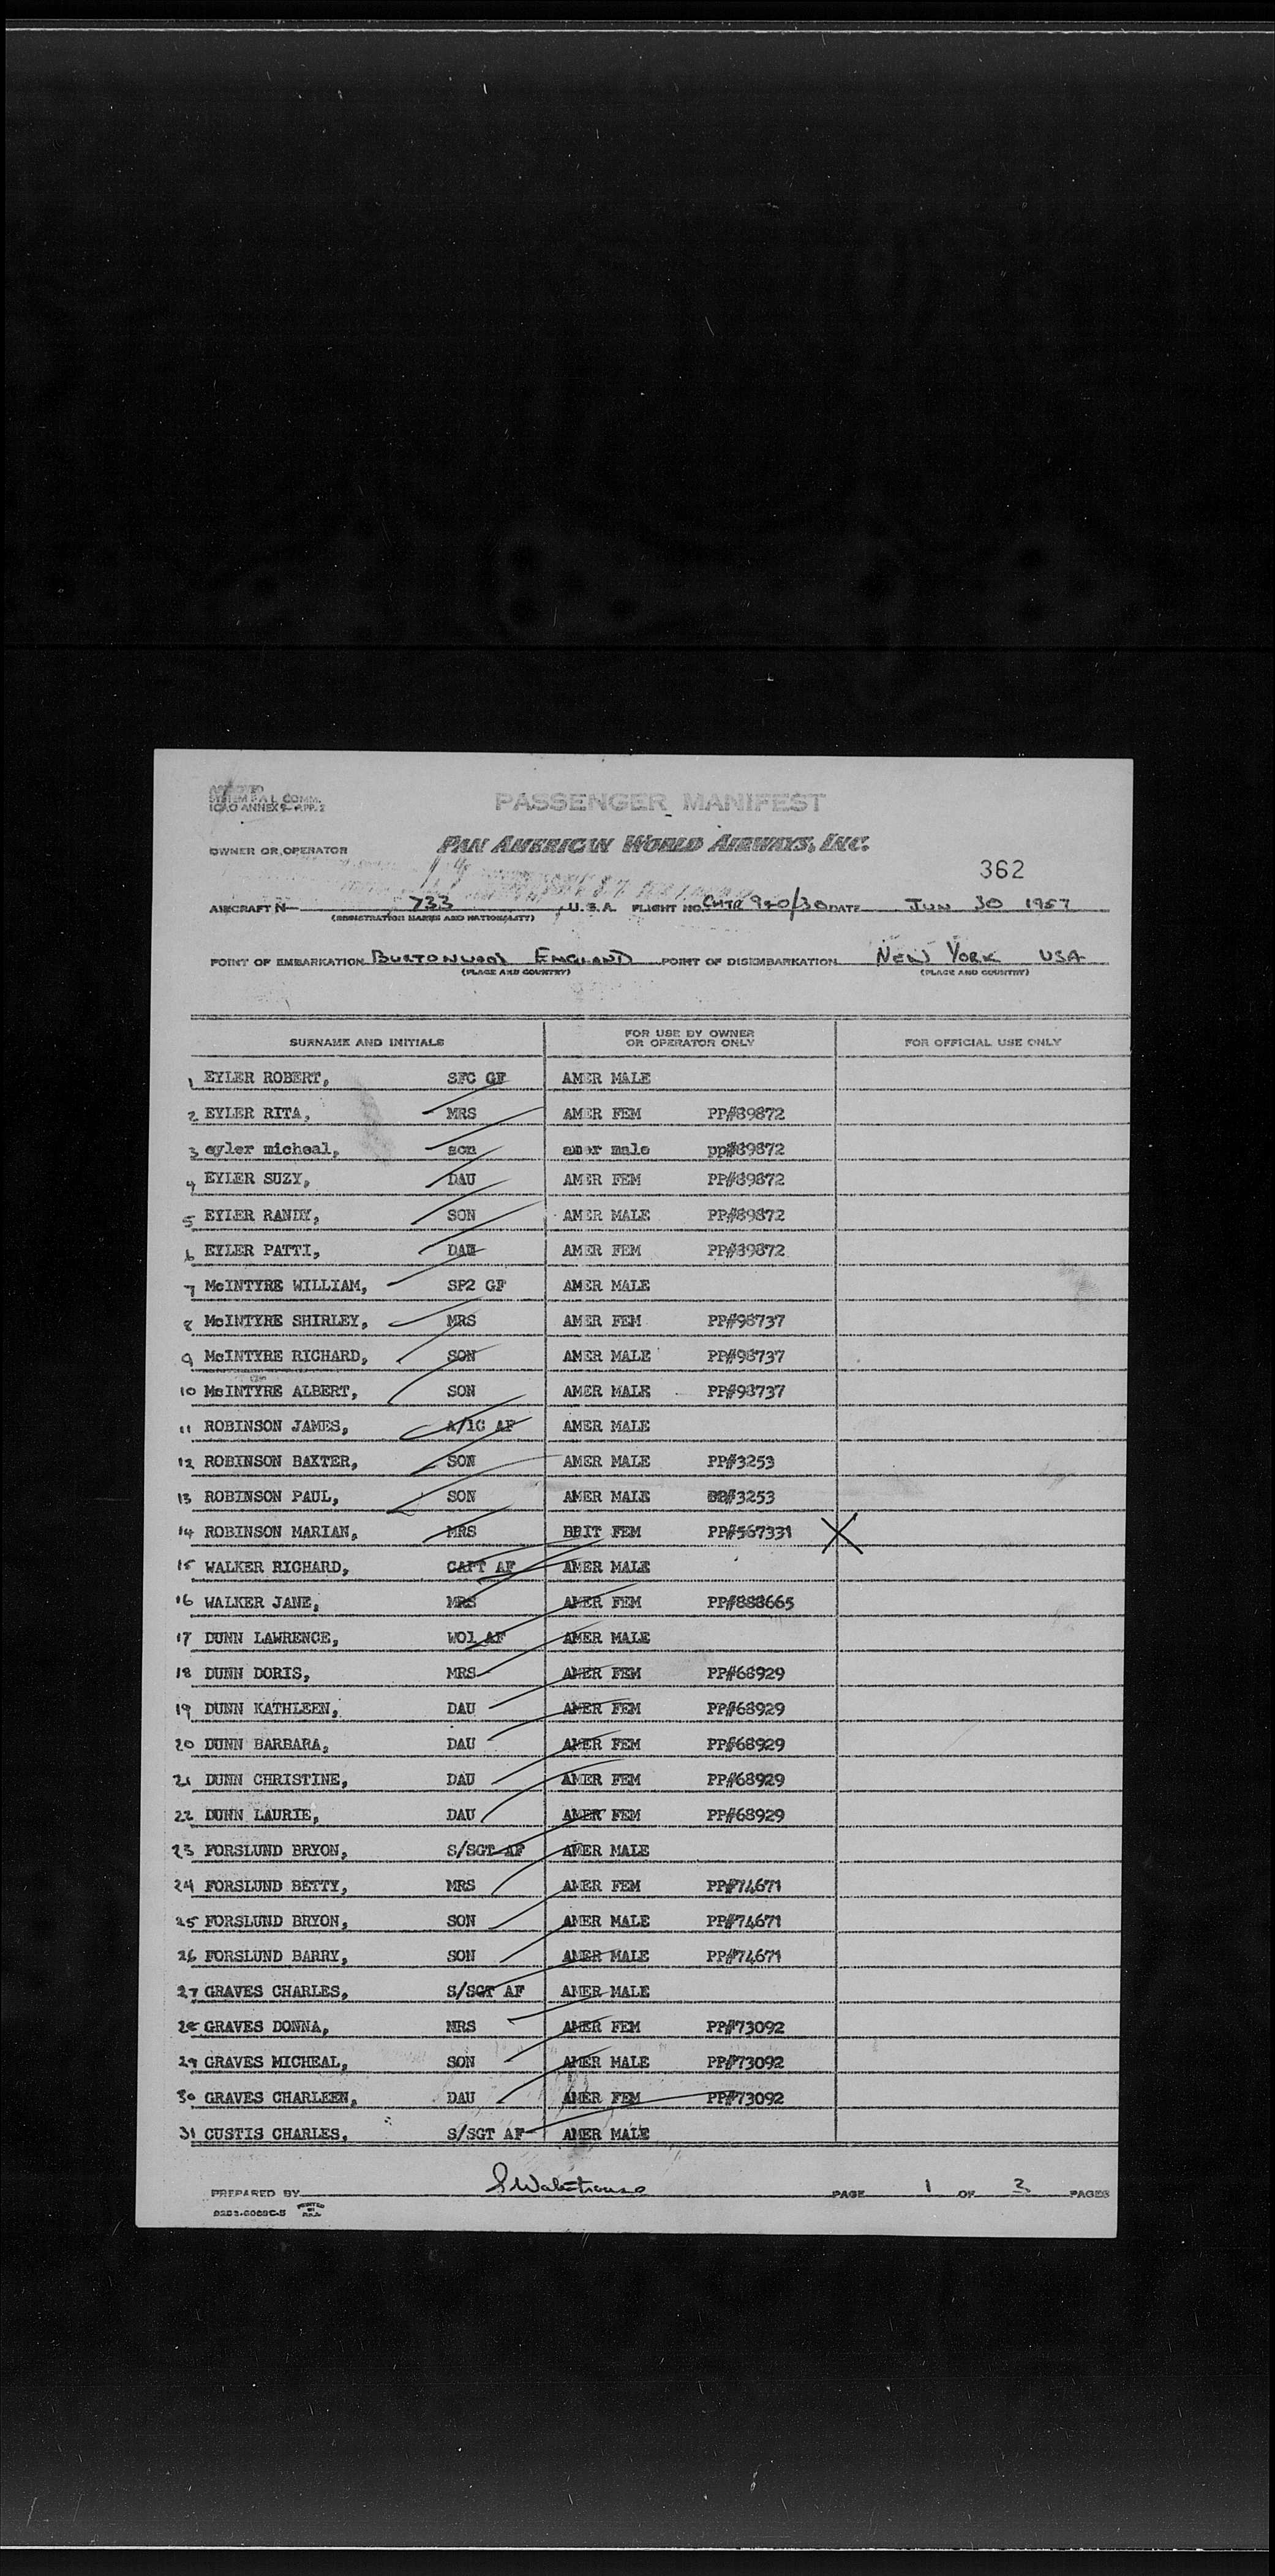 SYSTEM F.A.L. COMM.
ICAO ANNEX 9-APP. 2
PASSENGER MANIFEST
OWNER OR OPERATOR PAN AMERICAN WORLD AIRWAYS, INC.
362
AIRCRAFT N— 733 , U.S.A. FLIGHT NO. CHTR 920/30 DATE JUN 30 1957
(REGISTRATION MARKS AND NATIONALITY)
POINT OF EMBARKATION BURTONWOOD ENGLAND POINT OF DISEMBARKATION NEW YORK USA
(PLACE AND COUNTRY) (PLACE AND COUNTRY)
SURNAME AND INITIALS FOR USE BY OWNER OR OPERATOR ONLY FOR OFFICIAL USE ONLY
1 EYLER ROBERT, SFC GF AMER MALE
2 EYLER RITA, MRS AMER FEM PP#89872
3 eyler micheal, son amer male pp#89872
4 EYLER SUZY, DAU AMER FEM PP#89872
5 EYLER RANDY, SON AMER MALE PP#89872
6 EYLER PATTI, DAU AMER FEM PP#89872
7 McINTYRE WILLIAM, SP2 GF AMER MALE
8 McINTYRE SHIRLEY, MRS AMER FEM PP#98737
9 McINTYRE RICHARD, SON AMER MALE PP#98737
10 McINTYRE ALBERT, SON AMER MALE PP#98737
11 ROBINSON JAMES, A/1C AF AMER MALE
12 ROBINSON BAXTER, SON AMER MALE PP#3253
13 ROBINSON PAUL, SON AMER MALE PP#3253
14 ROBINSON MARIAN, MRS BRIT FEM PP#567331 X
15 WALKER RICHARD, CAPT AF AMER MALE
16 WALKER JANE, MRS AMER FEM PP#888665
17 DUNN LAWRENCE, WO1 AF AMER MALE
18 DUNN DORIS, MRS AMER FEM PP#68929
19 DUNN KATHLEEN, DAU AMER FEM PP#68929
20 DUNN BARBARA, DAU AMER FEM PP#68929
21 DUNN CHRISTINE, DAU AMER FEM PP#68929
22 DUNN LAURIE, DAU AMER FEM PP#68929
23 FORSLUND BRYON, S/SGT AF AMER MALE
24 FORSLUND BETTY, MRS AMER FEM PP#74671
25 FORSLUND BRYON, SON AMER MALE PP#74671
26 FORSLUND BARRY, SON AMER MALE PP#74671
27 GRAVES CHARLES, S/SGT AF AMER MALE
28 GRAVES DONNA, MRS AMER FEM PP#73092
29 GRAVES MICHEAL, SON AMER MALE PP#73092
30 GRAVES CHARLEEN, DAU AMER FEM PP#73092
31 CUSTIS CHARLES, S/SGT AF AMER MALE
PREPARED BY PAGE 1 OF 3 PAGES
PRINTED IN U.S.A.